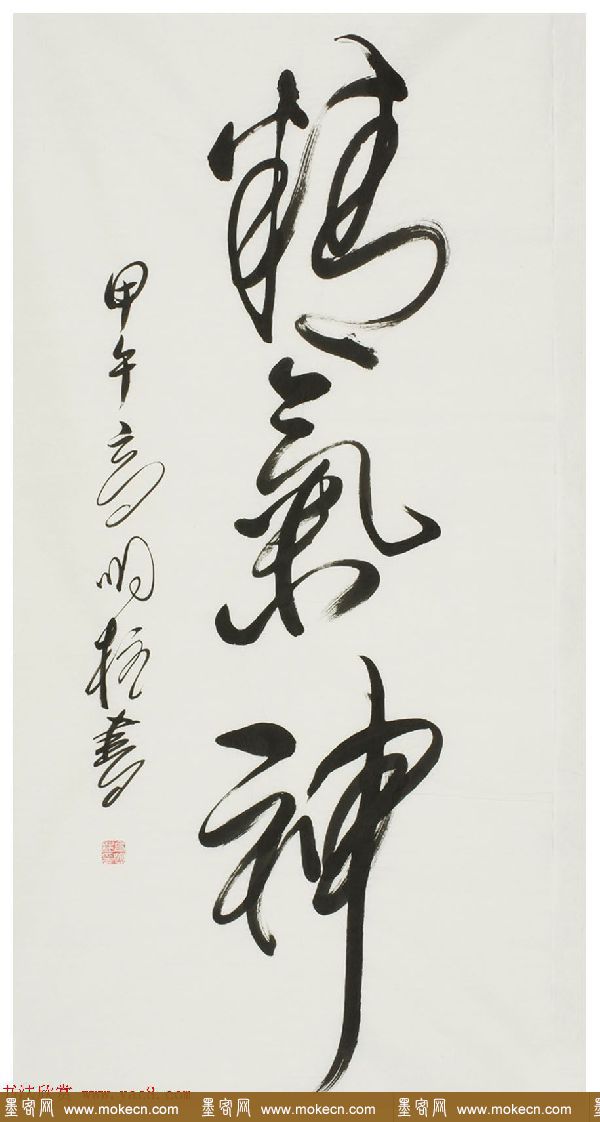 精氣神
甲午高明柱書
书法欣赏 www.yac8.com
墨客网 www.mokecn.com 墨客网 www.mokecn.com 墨客网 www.mokecn.com